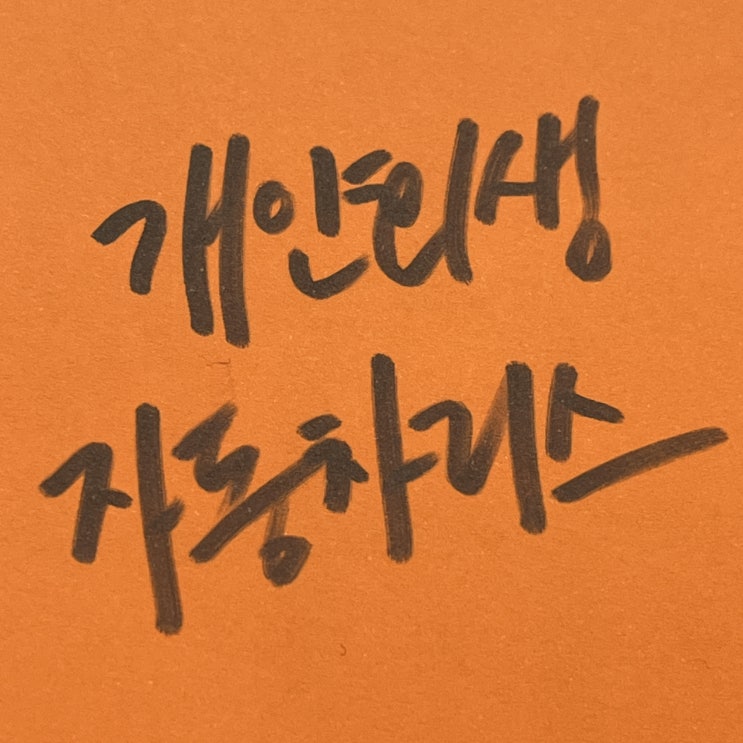 개인회생
자동차리스